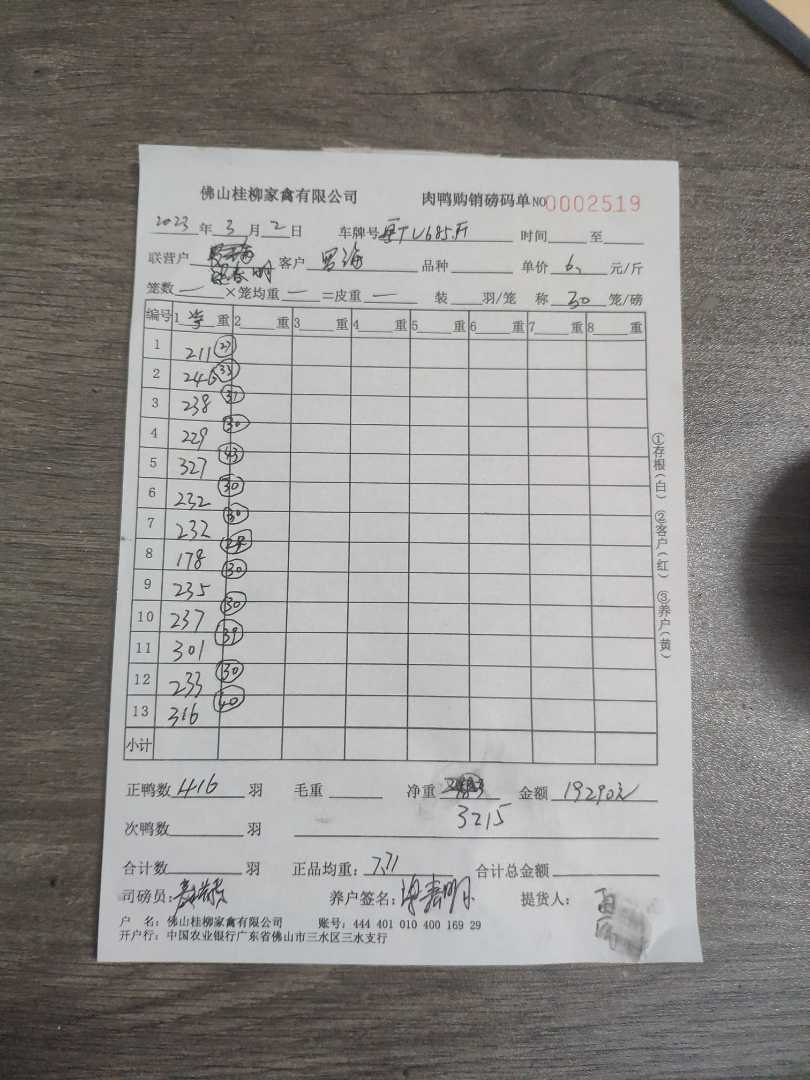 佛山桂柳家禽有限公司 肉鸭购销磅码单 NO 0002519
2023 年 3 月 2 日 车牌号 粤TU685开 时间 至
联营户 客户 罗海 品种 单价 6. 元/斤
笼数 一 ×笼均重 一 =皮重 一 装 羽/笼 称 30 笼/磅
编号 1 重 2 重 3 重 4 重 5 重 6 重 7 重 8 重
1 211 27
2 246 33
3 238 31
4 229 30
5 327 43
6 232 30
7 232 30
8 178
9 235 30
10 237 30
11 301 39
12 233 30
13 316 40
小计
正鸭数 416 羽 毛重 净重 金额 19290元
3215
次鸭数 羽
合计数 羽 正品均重: 7.71 合计总金额
司磅员: 养户签名: 提货人:
户 名: 佛山桂柳家禽有限公司 账号: 444 401 010 400 169 29
开户行: 中国农业银行广东省佛山市三水区三水支行
①存根(白) ②客户(红) ③养户(黄)